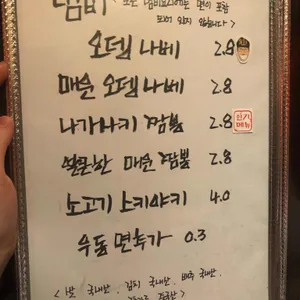 냄비
< 모든 냄비요리에는 면이 포함
되어 있지 않습니다 >
오뎅나베 2.8
매운 오뎅나베 2.8
나가사키 짬뽕 2.8
인기메뉴
얼큰한 매운 짬뽕 2.8
소고기 스키야키 4.0
우동 면추가 0.3
< 쌀 국내산, 김치 국내산, 배추 국내산,